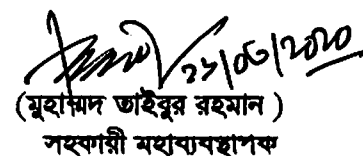 ২১/০৬/2020
(মুহাম্মদ তাইবুর রহমান )
সহকারী মহাব্যবস্থাপক